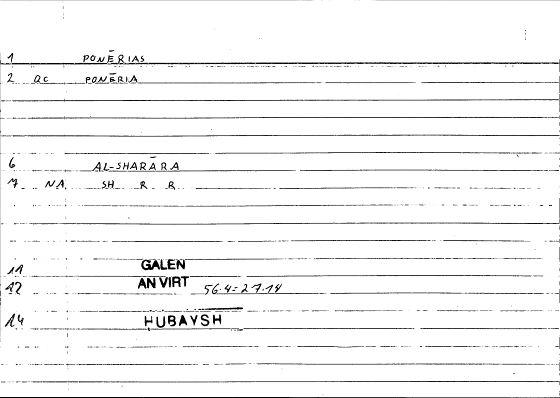 1 PONĒRIAS
2 QC PONĒRIA
6 AL-SHARĀRA
7 NA SH R R
11 GALEN
12 AN VIRT 56.4=27.14
14 HUBAYSH